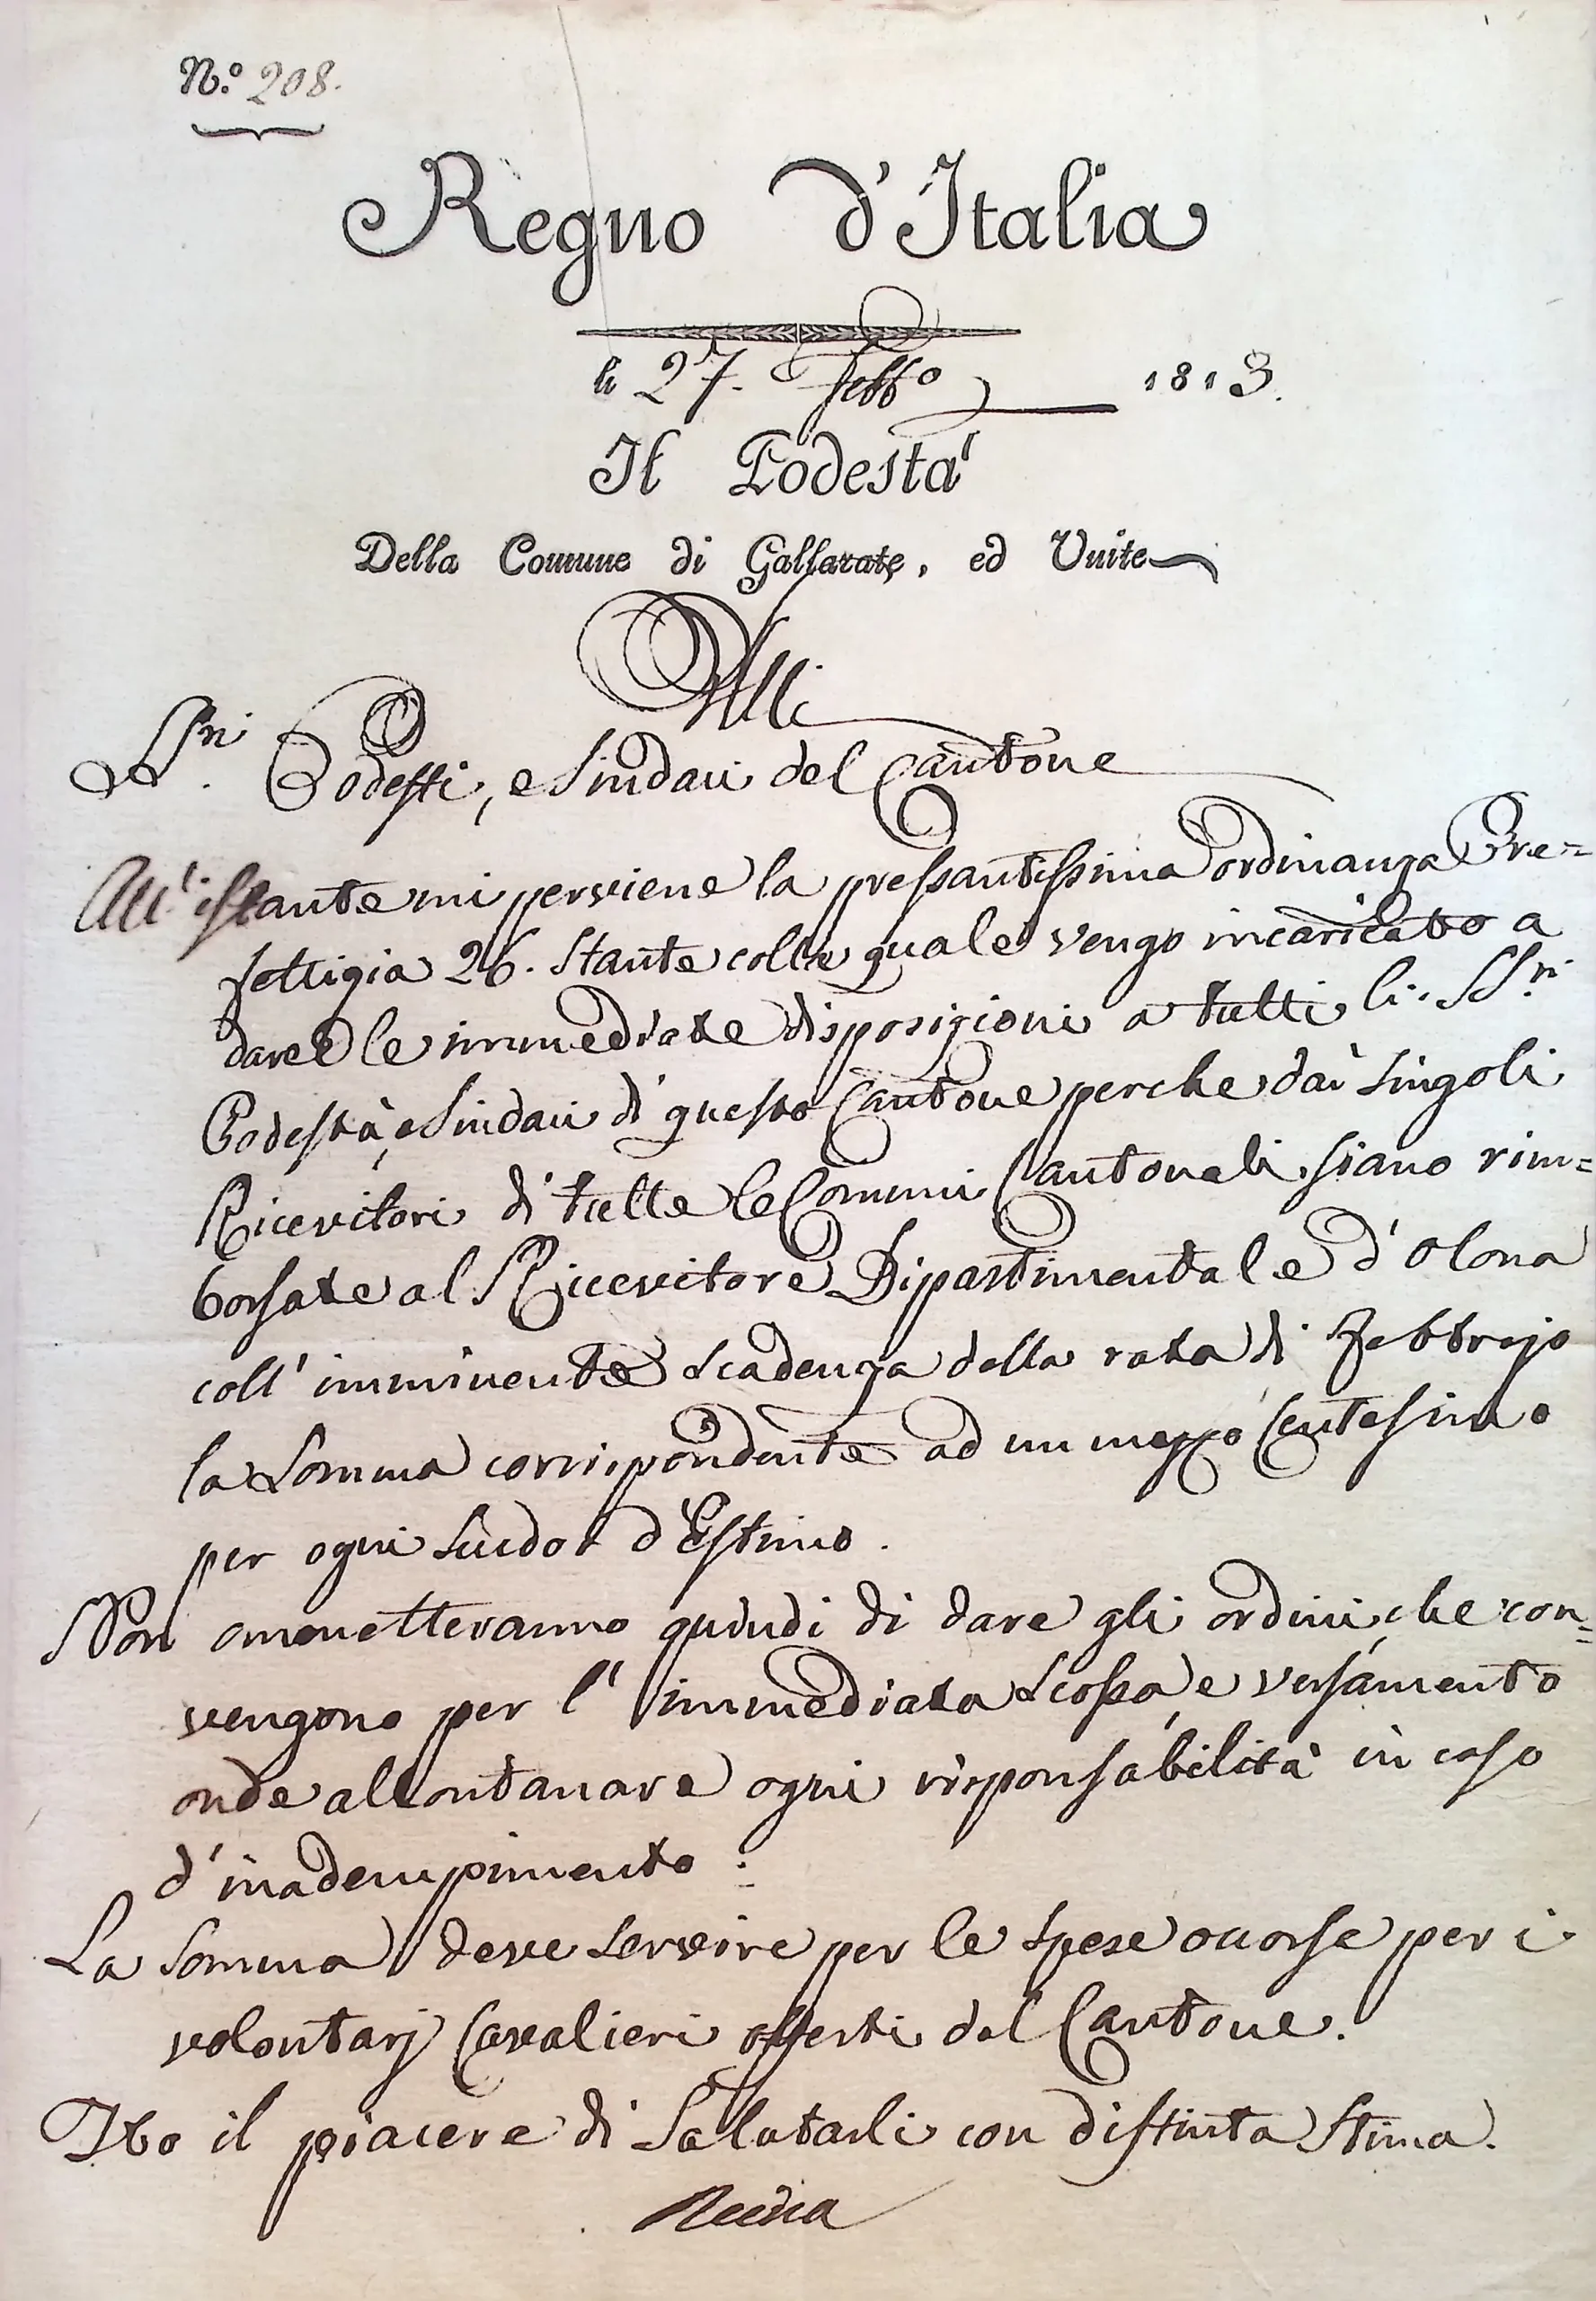 N.º 208.
Regno d'Italia
li 27. Febb.º 1813.
Il Podestà
Della Comune di Gallarate, ed Unite
Alli
SS.ri Podestà, e Sindaci del Cantone
All'istante mi perviene la pressantissima ordinanza Pre=
fettizia 26. stante colla quale vengo incaricato a
dare le immediate disposizioni a tutti li SS.ri
Podestà, e Sindaci di questo Cantone perche dai singoli
Ricevitori di tutte le Comuni Cantonali siano rim=
borsate al Ricevitore Dipartimentale d'Olona
coll'imminente scadenza della rata di Febbrajo
la somma corrispondente ad un mezzo Centesimo
per ogni scudo d'Estimo.
Non ommetteranno quindi di dare gli ordini, che con=
vengono per l'immediata scossa, e versamento
onde allontanare ogni risponsabilità in caso
d'inadempimento:
La somma deve servire per le spese occorse per i
volontarj Cavalieri offerti dal Cantone.
Ho il piacere di salutarli con distinta stima.